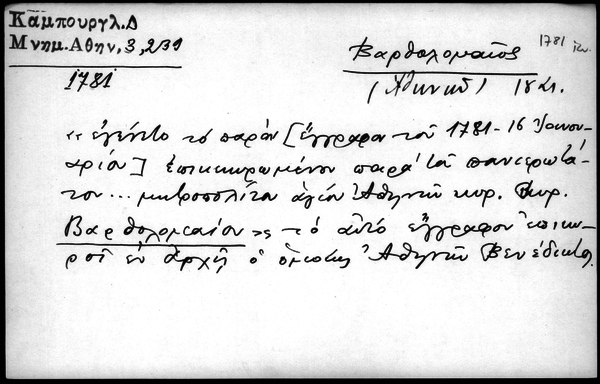 Καμπουργλ.Δ
Μνημ.Αθην, 3, 231
1781
Βαρθολομαῖος
1781
(Ἀθηνῶν)
« ἐγένετο τό παρόν [ἔγγραφον τοῦ 1781-16 Ἰανου-
αρίου] ἐπικεκυρωμένον παρά τοῦ πανιερωτά-
του ... μητροπολίτου ἁγίου Ἀθηνῶν κυρ. κυρ.
Βαρθολομαίου » τό αὐτό ἔγγραφον ἐπικυ-
ροῖ ἐν ἀρχῇ ὁ Ἀθηνῶν Βενέδικτος.